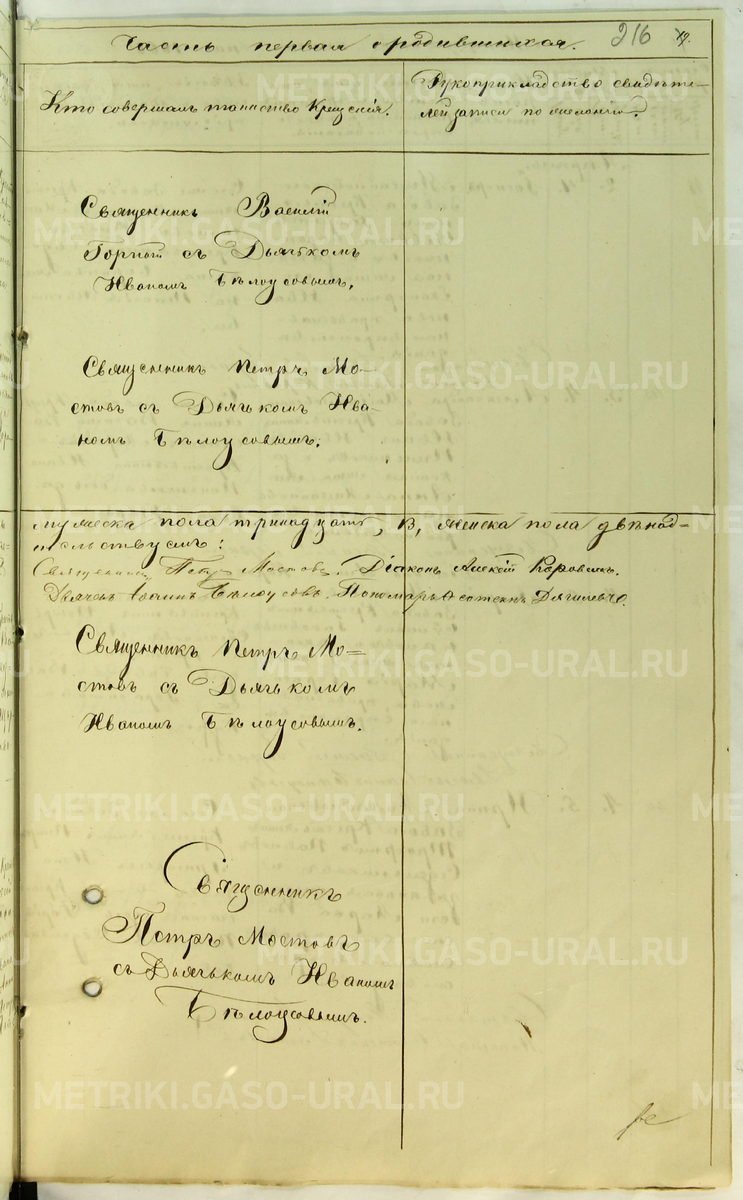 Часть первая о родившихся. 216
Кто совершалъ таинство Крещенія.
Рукоприкладство свидѣте-
лей записи по желанію.
Священникъ Василій
съ Дьячкомъ
Иваномъ Бѣлоусовымъ.
Священникъ Петръ Мо-
стовъ съ Дьячькомъ Ива-
номъ Бѣлоусовымъ.
мужеска пола тринадцать, женска пола двѣнад-
тельствуемъ:
Священникъ Петръ Мостовъ. Діаконъ Алексій
Дьячекъ Іоаннъ Бѣлоусовъ. Пономарь
Священникъ Петръ Мо-
стовъ съ Дьячькомъ
Иваномъ Бѣлоусовымъ.
Священникъ
Петръ Мостовъ
съ Дьячькомъ Иваномъ
Бѣлоусовымъ.
METRIKI.GASO-URAL.RU